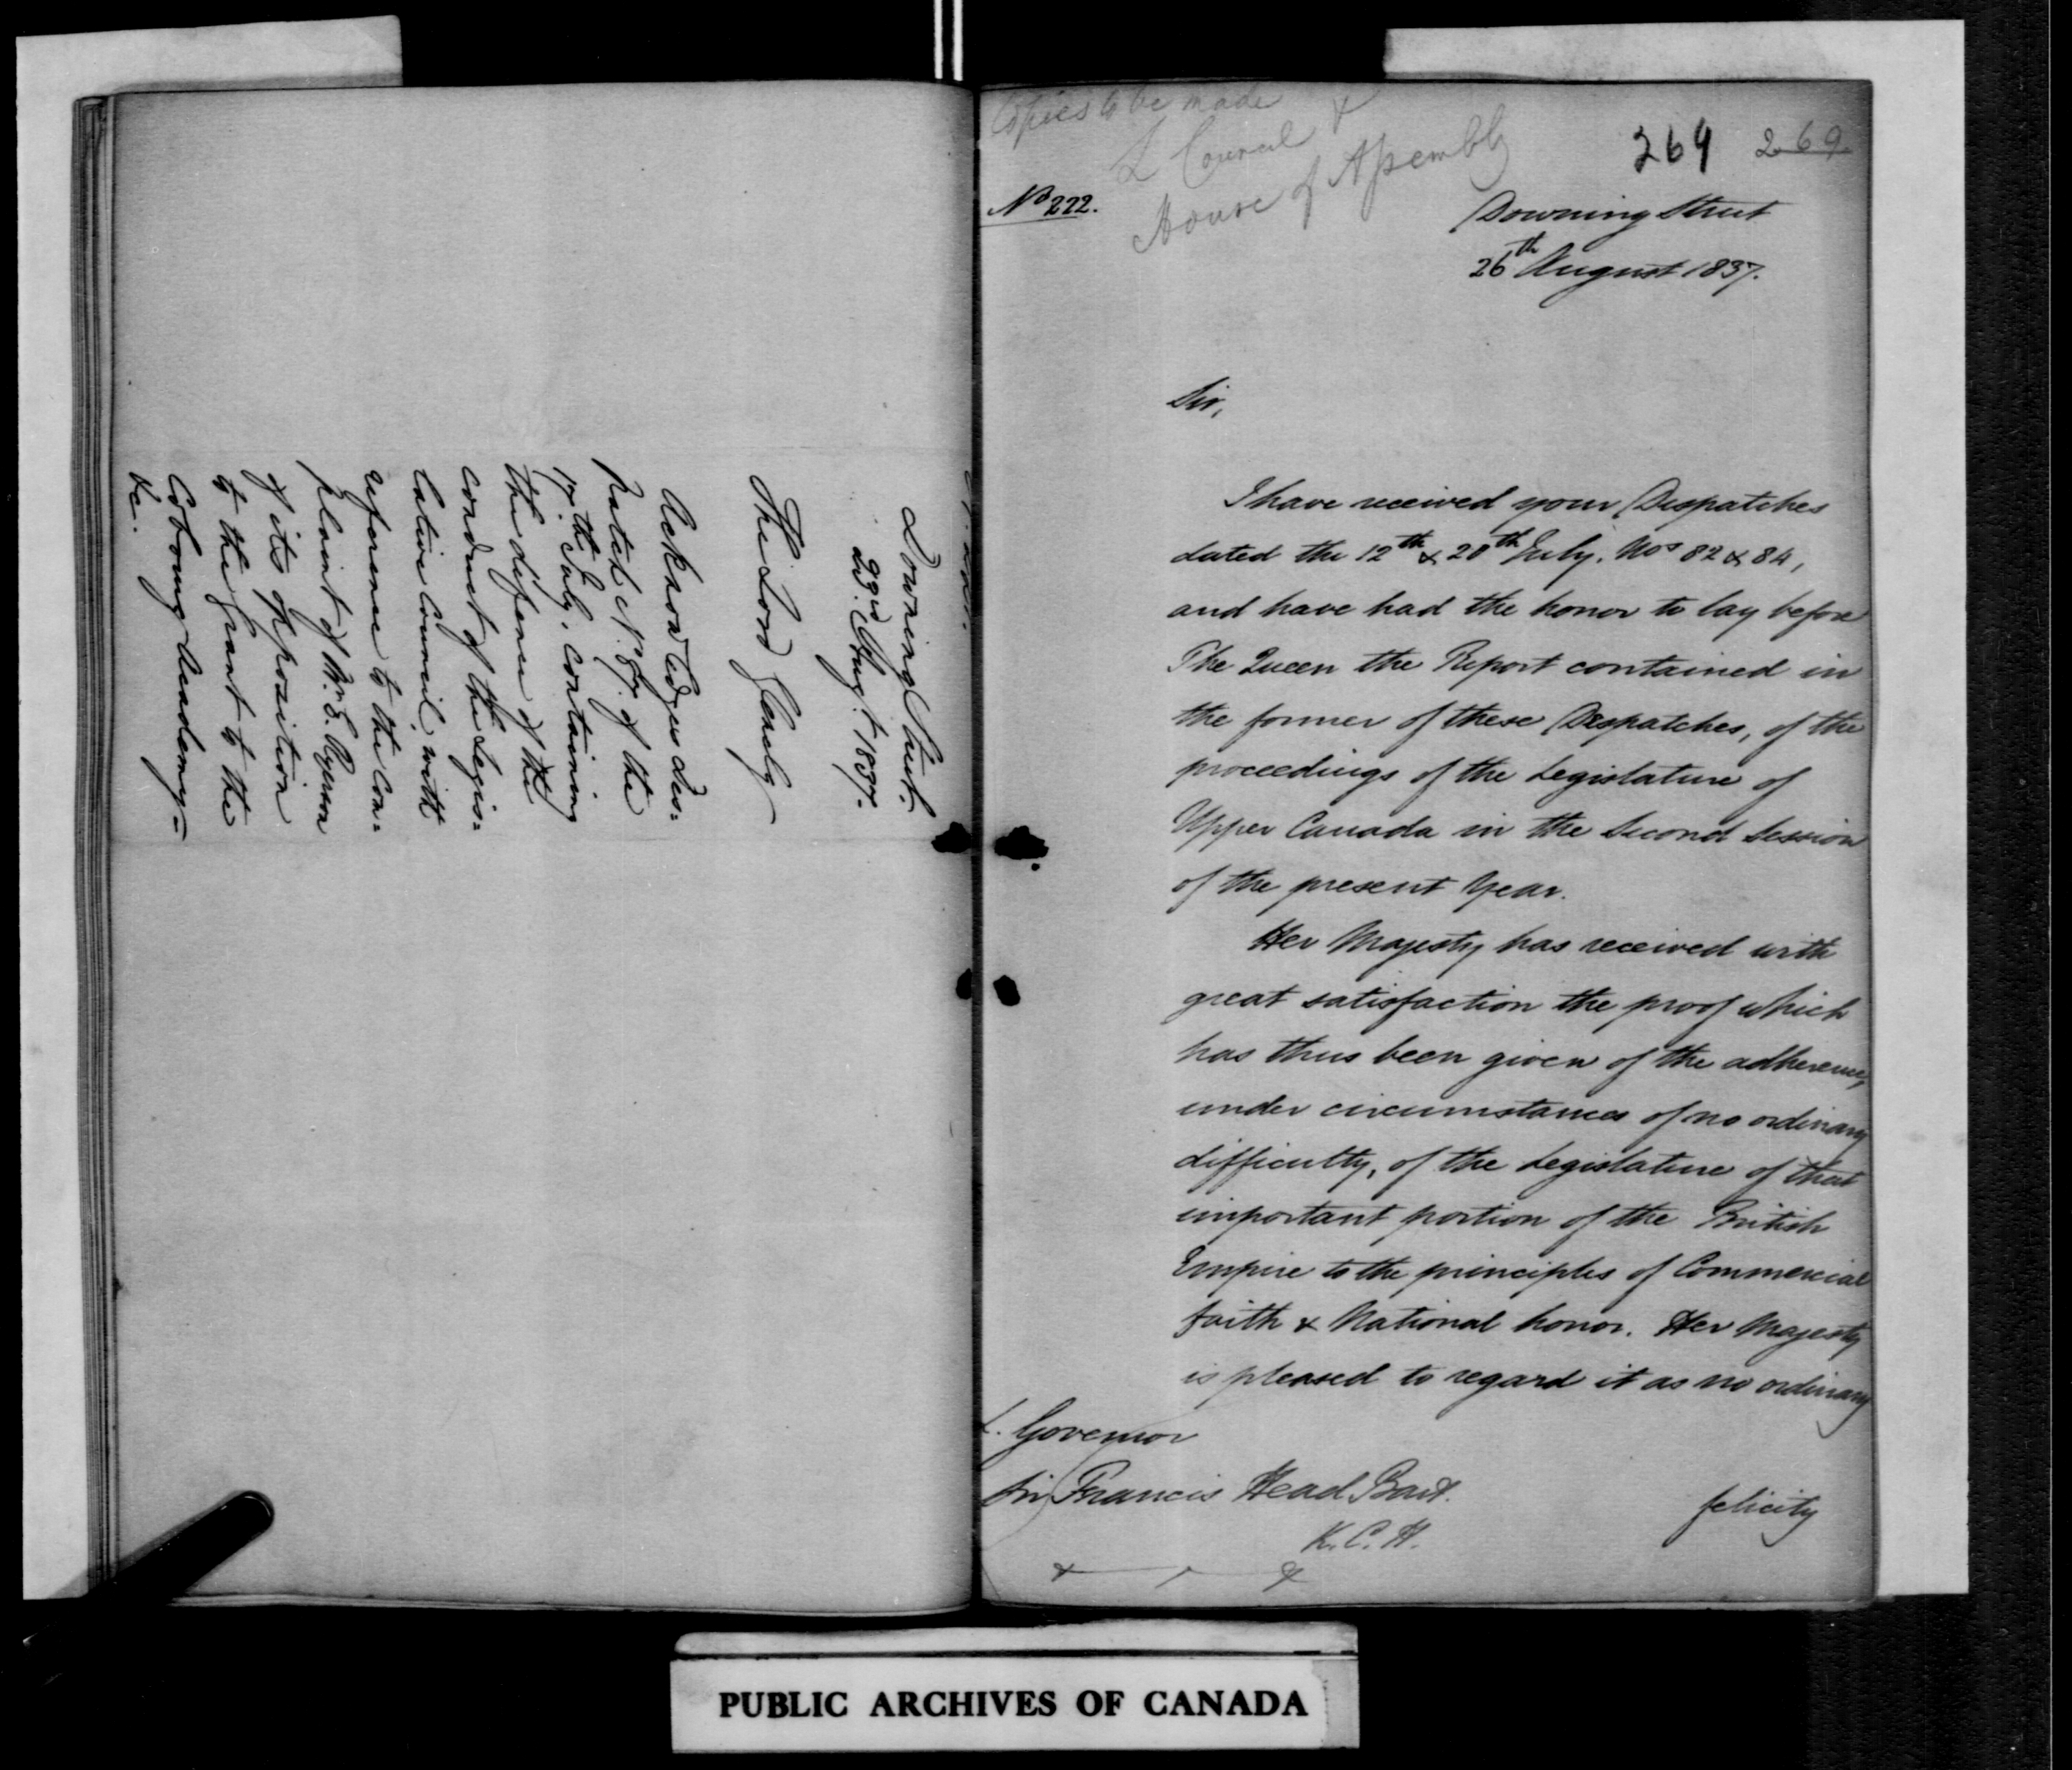 Downing Street.
23rd Augt. 1837.
The Lord Glenelg
Acknowledges des=
patch No. 87. of the
17th July. containing
the defence of the
conduct of the Legis=
lative Council, with
reference to the Com=
plaint of Mr. E. Ryerson
of its opposition
to the grant to the
Cobourg Academy=
&c.
Copies to be made
L Council &
House of Assembly
264 269
No 222.
Downing Street
26th August 1837.
Sir,
I have received your Despatches
dated the 12th & 20th July. Nos 82 & 84,
and have had the honor to lay before
The Queen the Report contained in
the former of these Despatches, of the
proceedings of the Legislature of
Upper Canada in the Second Session
of the present Year.
Her Majesty has received with
great satisfaction the proof which
has thus been given of the adherence,
under circumstances of no ordinary
difficulty, of the Legislature of that
important portion of the British
Empire to the principles of Commercial
faith & National honor. Her Majesty
is pleased to regard it as no ordinary
Governor
Sir Francis Head Bart.
K.C.H.
felicity
PUBLIC ARCHIVES OF CANADA